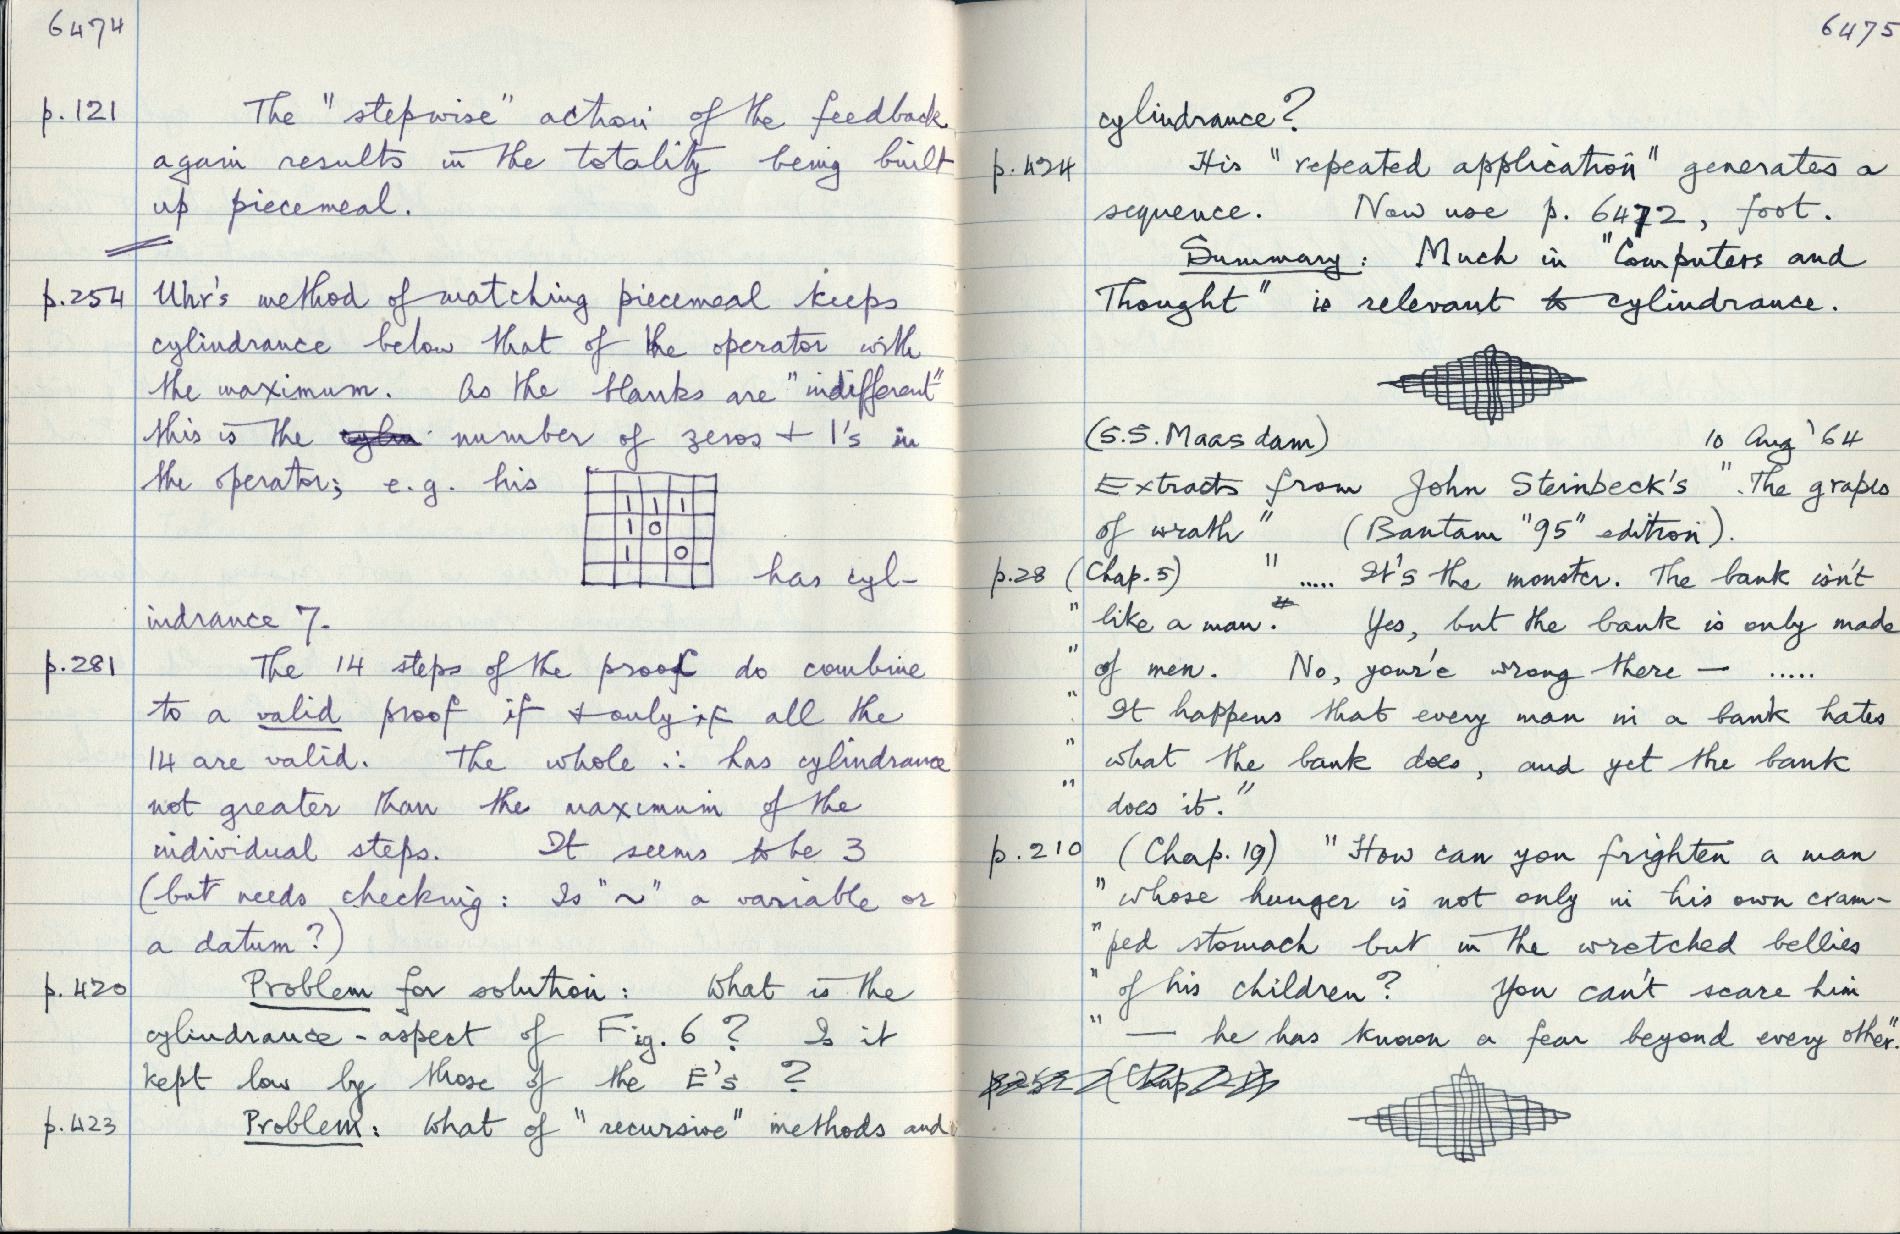 6474
p.121 The "stepwise" action of the feedback
again results in the totality being built
up piecemeal.
p.254 Uhr's method of matching piecemeal keeps
cylindrance below that of the operator with
the maximum. As the blanks are "indifferent"
this is the number of zeros + 1's in
the operator; e.g. his
1 1 1
1 0
1 0
has cyl-
indrance 7.
p.281 The 14 steps of the proof do combine
to a valid proof if + only if all the
14 are valid. The whole ∴ has cylindrance
not greater than the maximum of the
individual steps. It seems to be 3
(but needs checking: Is "~" a variable or
a datum?)
p.420 Problem for solution: What is the
cylindrance-aspect of Fig. 6? Is it
kept low by those of the E's?
p.423 Problem: What of "recursive" methods and
6475
cylindrance?
p.424 His "repeated application" generates a
sequence. Now use p. 6472, foot.
Summary: Much in "Computers and
Thought" is relevant to cylindrance.
(S.S. Maasdam) 10 Aug '64
Extracts from John Steinbeck's "The grapes
of wrath" (Bantam "95" edition).
p.28 (Chap. 5) "..... It's the monster. The bank isn't
" like a man. Yes, but the bank is only made
" of men. No, your'e wrong there — .....
" It happens that every man in a bank hates
" what the bank does, and yet the bank
" does it."
p.210 (Chap. 19) "How can you frighten a man
" whose hunger is not only in his own cram-
" ped stomach but in the wretched bellies
" of his children? You can't scare him
" — he has known a fear beyond every other".